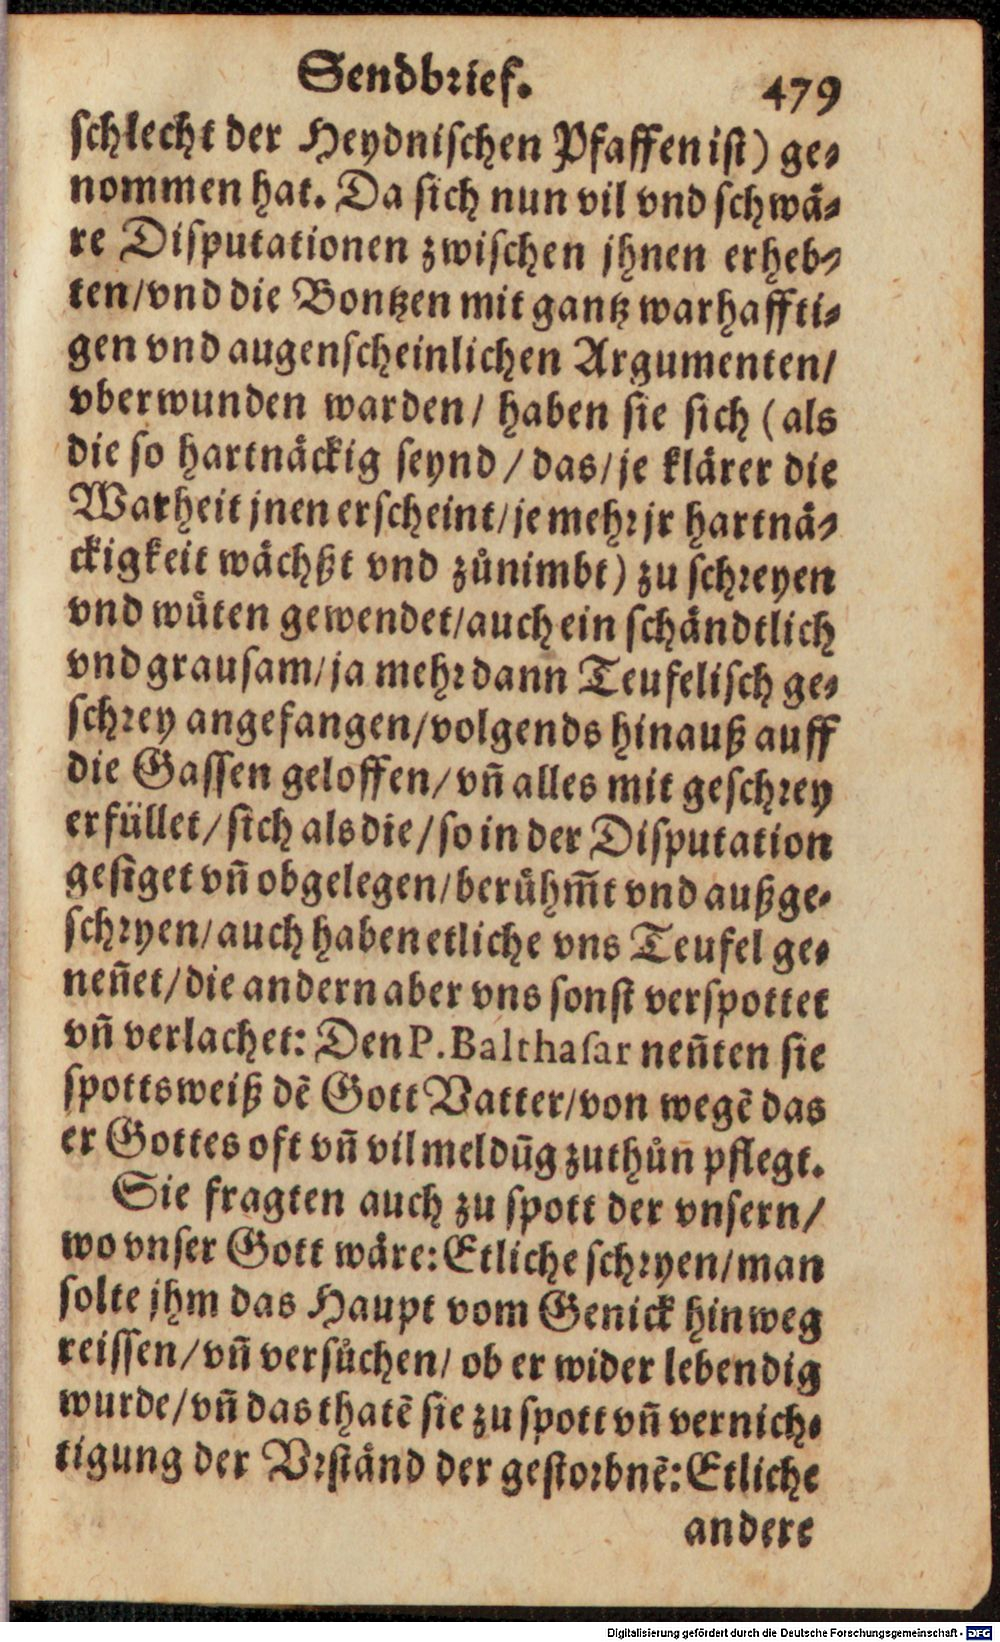 Sendbrief. 479
schlecht der Heydnischen Pfaffen ist) ge-
nommen hat. Da sich nun vil vnd schwä-
re Disputationen zwischen jhnen erheb-
ten/vnd die Bontzen mit gantz warhaffti-
gen vnd augenscheinlichen Argumenten/
vberwunden warden/ haben sie sich (als
die so hartnäckig seynd/das/je klärer die
Warheit jnen erscheint/je mehr jr hartnä-
ckigkeit wächßt vnd zůnimbt) zu schreyen
vnd wüten gewendet/auch ein schändtlich
vnd grausam/ja mehr dann Teufelisch ge-
schrey angefangen/volgends hinauß auff
die Gassen geloffen/vñ alles mit geschrey
erfüllet/sich als die/so in der Disputation
gesiget vñ obgelegen/berühm̃t vnd außge-
schryen/auch haben etliche vns Teufel ge-
neñet/die andern aber vns sonst verspottet
vñ verlachet: Den P. Balthasar neñten sie
spottsweiß dẽ Gott Vatter/von wegẽ das
er Gottes oft vñ vil meldũg zuthůn pflegt.
Sie fragten auch zu spott der vnsern/
wo vnser Gott wäre: Etliche schryen/man
solte jhm das Haupt vom Genick hinweg
reissen/vñ versůchen/ ob er wider lebendig
wurde/vñ das thatẽ sie zu spott vñ vernich-
tigung der Vrständ der gestorbnẽ: Etliche
andere
Digitalisierung gefördert durch die Deutsche Forschungsgemeinschaft - DFG